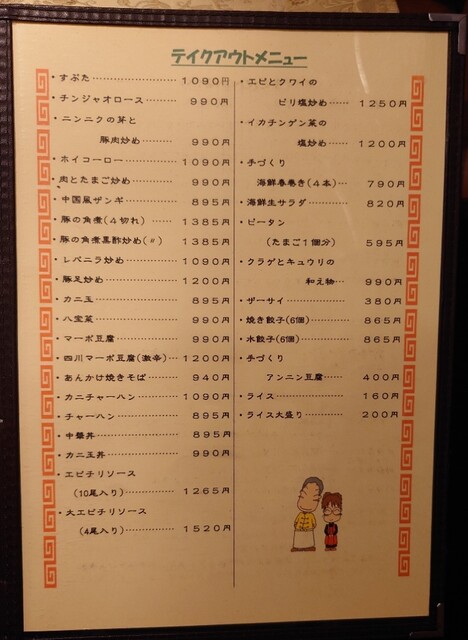 テイクアウトメニュー
・すぶた………………… 1090円
・チンジャオロース……… 990円
・ニンニクの芽と
豚肉炒め……… 990円
・ホイコーロー…………… 1090円
・肉とたまご炒め………… 990円
・中国風ザンギ…………… 895円
・豚の角煮(4切れ) …… 1385円
・豚の角煮黒酢炒め(〃) 1385円
・レバニラ炒め…………… 1090円
・豚足炒め………………… 1200円
・カニ玉…………………… 895円
・八宝菜…………………… 990円
・マーボ豆腐……………… 990円
・四川マーボ豆腐(激辛)… 1200円
・あんかけ焼きそば……… 940円
・カニチャーハン………… 1090円
・チャーハン……………… 895円
・中華丼…………………… 895円
・カニ玉丼………………… 990円
・エビチリソース
(10尾入り)…………… 1265円
・大エビチリソース
(4尾入り)…………… 1520円
・エビとクワイの
ピリ塩炒め…… 1250円
・イカチンゲン菜の
塩炒め…… 1200円
・手づくり
海鮮春巻き(4本)… 790円
・海鮮生サラダ…………… 820円
・ピータン
(たまご1個分) 595円
・クラゲとキュウリの
和え物… 990円
・ザーサイ………………… 380円
・焼き餃子(6個)………… 865円
・水餃子(6個)…………… 865円
・手づくり
アンニン豆腐…… 400円
・ライス…………………… 160円
・ライス大盛り…………… 200円